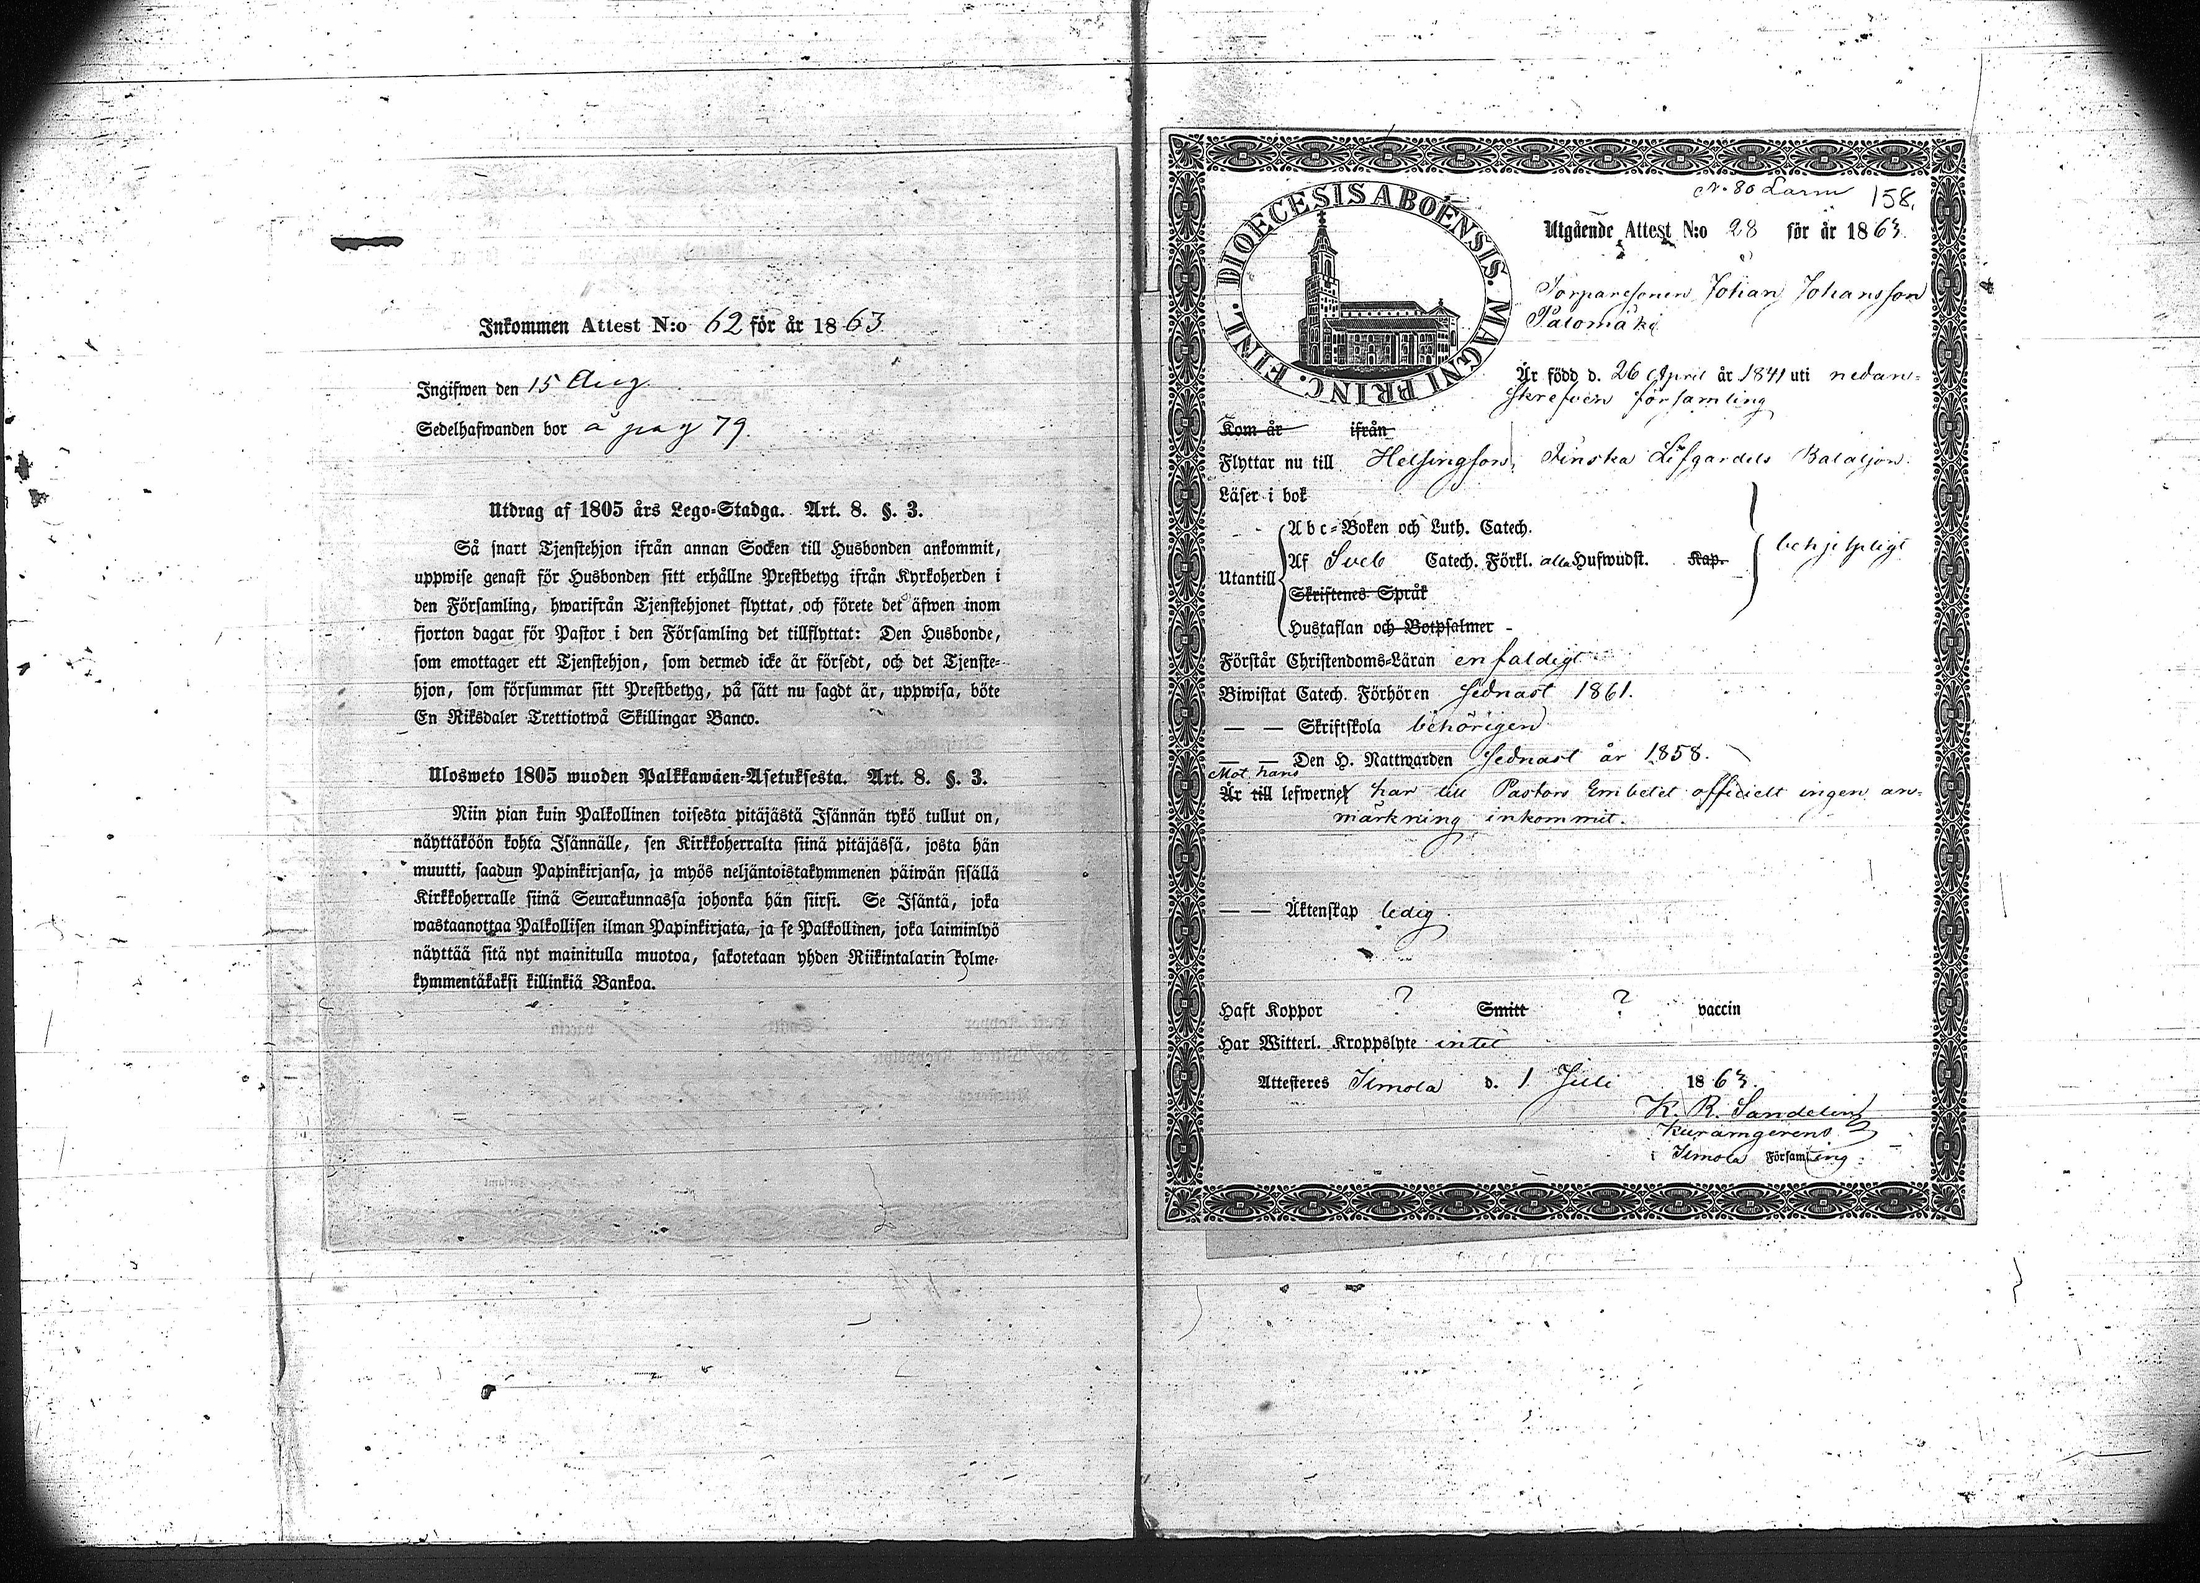 Inkommen Attest N:o 62 för år 1863
Ingifwen den 15 Aug.
Sedelhafwanden bor å pag 79.
Utdrag af 1805 års Lego-Stadga. Art. 8. §. 3.
Så snart Tjenstehjon ifrån annan Socken till Husbonden ankommit,
uppwise genast för Husbonden sitt erhållne Prestbetyg ifrån Kyrkoherden i
den Församling, hwarifrån Tjenstehjonet flyttat, och förete det äfwen inom
fjorton dagar för Pastor i den Församling det tillflyttat: Den Husbonde,
som emottager ett Tjenstehjon, som dermed icke är försedt, och det Tjenste-
hjon, som försummar sitt Prestbetyg, på sätt nu sagdt är, uppwisa, böte
En Riksdaler Trettiotwå Skillingar Banco.
Ulosweto 1805 wuoden Palkkawäen-Asetuksesta. Art. 8. §. 3.
Niin pian kuin Palkollinen toisesta pitäjästä Isännän tykö tullut on,
näyttäköön kohta Isännälle, sen Kirkkoherralta siinä pitäjässä, josta hän
muutti, saadun Papinkirjansa, ja myös neljäntoistakymmenen päiwän sisällä
Kirkkoherralle siinä Seurakunnassa johonka hän siirsi. Se Isäntä, joka
wastaanottaa Palkollisen ilman Papinkirjata, ja se Palkollinen, joka laiminlyö
näyttää sitä nyt mainitulla muotoa, sakotetaan yhden Riikintalarin kolme-
kymmentäkaksi killinkiä Bankoa.
N. 80 Larm 158.
DIOECESIS ABOËNSIS. MAGNI PRINC. FINL.
Utgående Attest N:o 28 för år 1863.
Torparesonen Johan Johansson
Palomäki
Är född d. 26 April år 1841 uti nedan-
skrefven församling
Kom år ifrån
Flyttar nu till Helsingfors, Finska Lifgardets Bataljon.
Läser i bok
Abc-Boken och Luth. Catech.
Utantill Af Sveb Catech. Förkl. alla Hufwudst. Kap. behjelpligt
Skriftenes Språk
Hustaflan och Botpsalmer -
Förstår Christendoms-Läran enfaldigt
Biwistat Catech. Förhören sednast 1861.
— — Skriftskola behörigen
— — Den H. Nattwarden sednast år 1858.
Mot hans
Är till lefwerne har till Pastors Embetet officielt ingen an-
märkning inkommit.
— — Äktenskap ledig.
Haft Koppor ? Smitt ? vaccin
Har Witterl. Kroppslyte intet
Attesteras d. 1 Juli 1863.
K. R. Sandelin
i Församling.